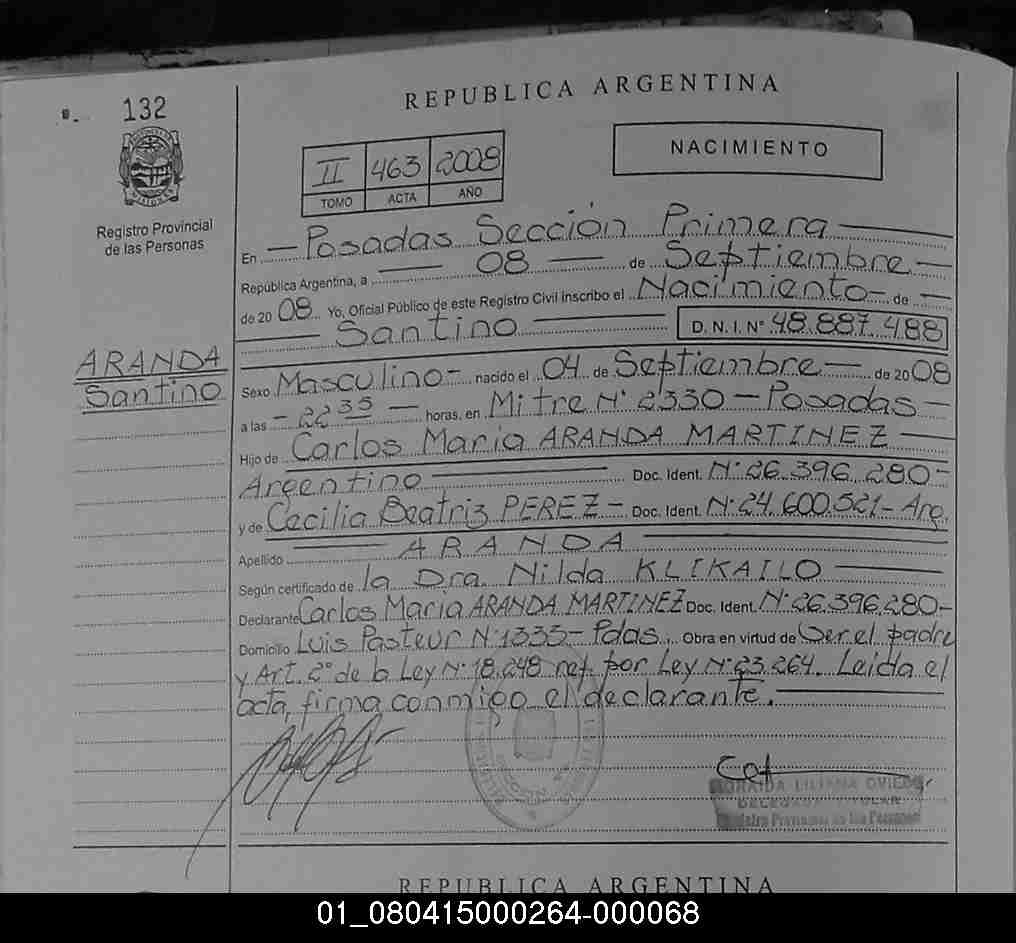 132
REPUBLICA ARGENTINA
NACIMIENTO
II 463 2008
TOMO ACTA AÑO
Registro Provincial
de las Personas
En Posadas Sección Primera
República Argentina, a 08 de Septiembre
de 2008. Yo, Oficial Público de este Registro Civil inscribo el Nacimiento de
Santino D.N.I. Nº 48.887.488
ARANDA
Santino
Sexo Masculino nacido el 04 de Septiembre de 2008
a las 22 35 horas, en Mitre Nº 2330 - Posadas
Hijo de Carlos Maria ARANDA MARTINEZ
Argentino Doc. Ident. Nº 26.396.280-
y de Cecilia Beatriz PEREZ - Doc. Ident. Nº 24.600.521- Arg.
Apellido ARANDA
Según certificado de la Dra. Nilda KLIKAILO
Declarante Carlos Maria ARANDA MARTINEZ Doc. Ident. Nº 26.396.280-
Domicilio Luis Pasteur Nº 1335- Pdas. Obra en virtud de Ser el padre
y Art. 2º de la Ley Nº 18.248 ref. por Ley Nº 23.264. Leida el
acta, firma conmigo el declarante.
LILIANA OVIEDO
DELEGADA TITULAR
Registro Provincial de las Personas
REPUBLICA ARGENTINA
01_080415000264-000068